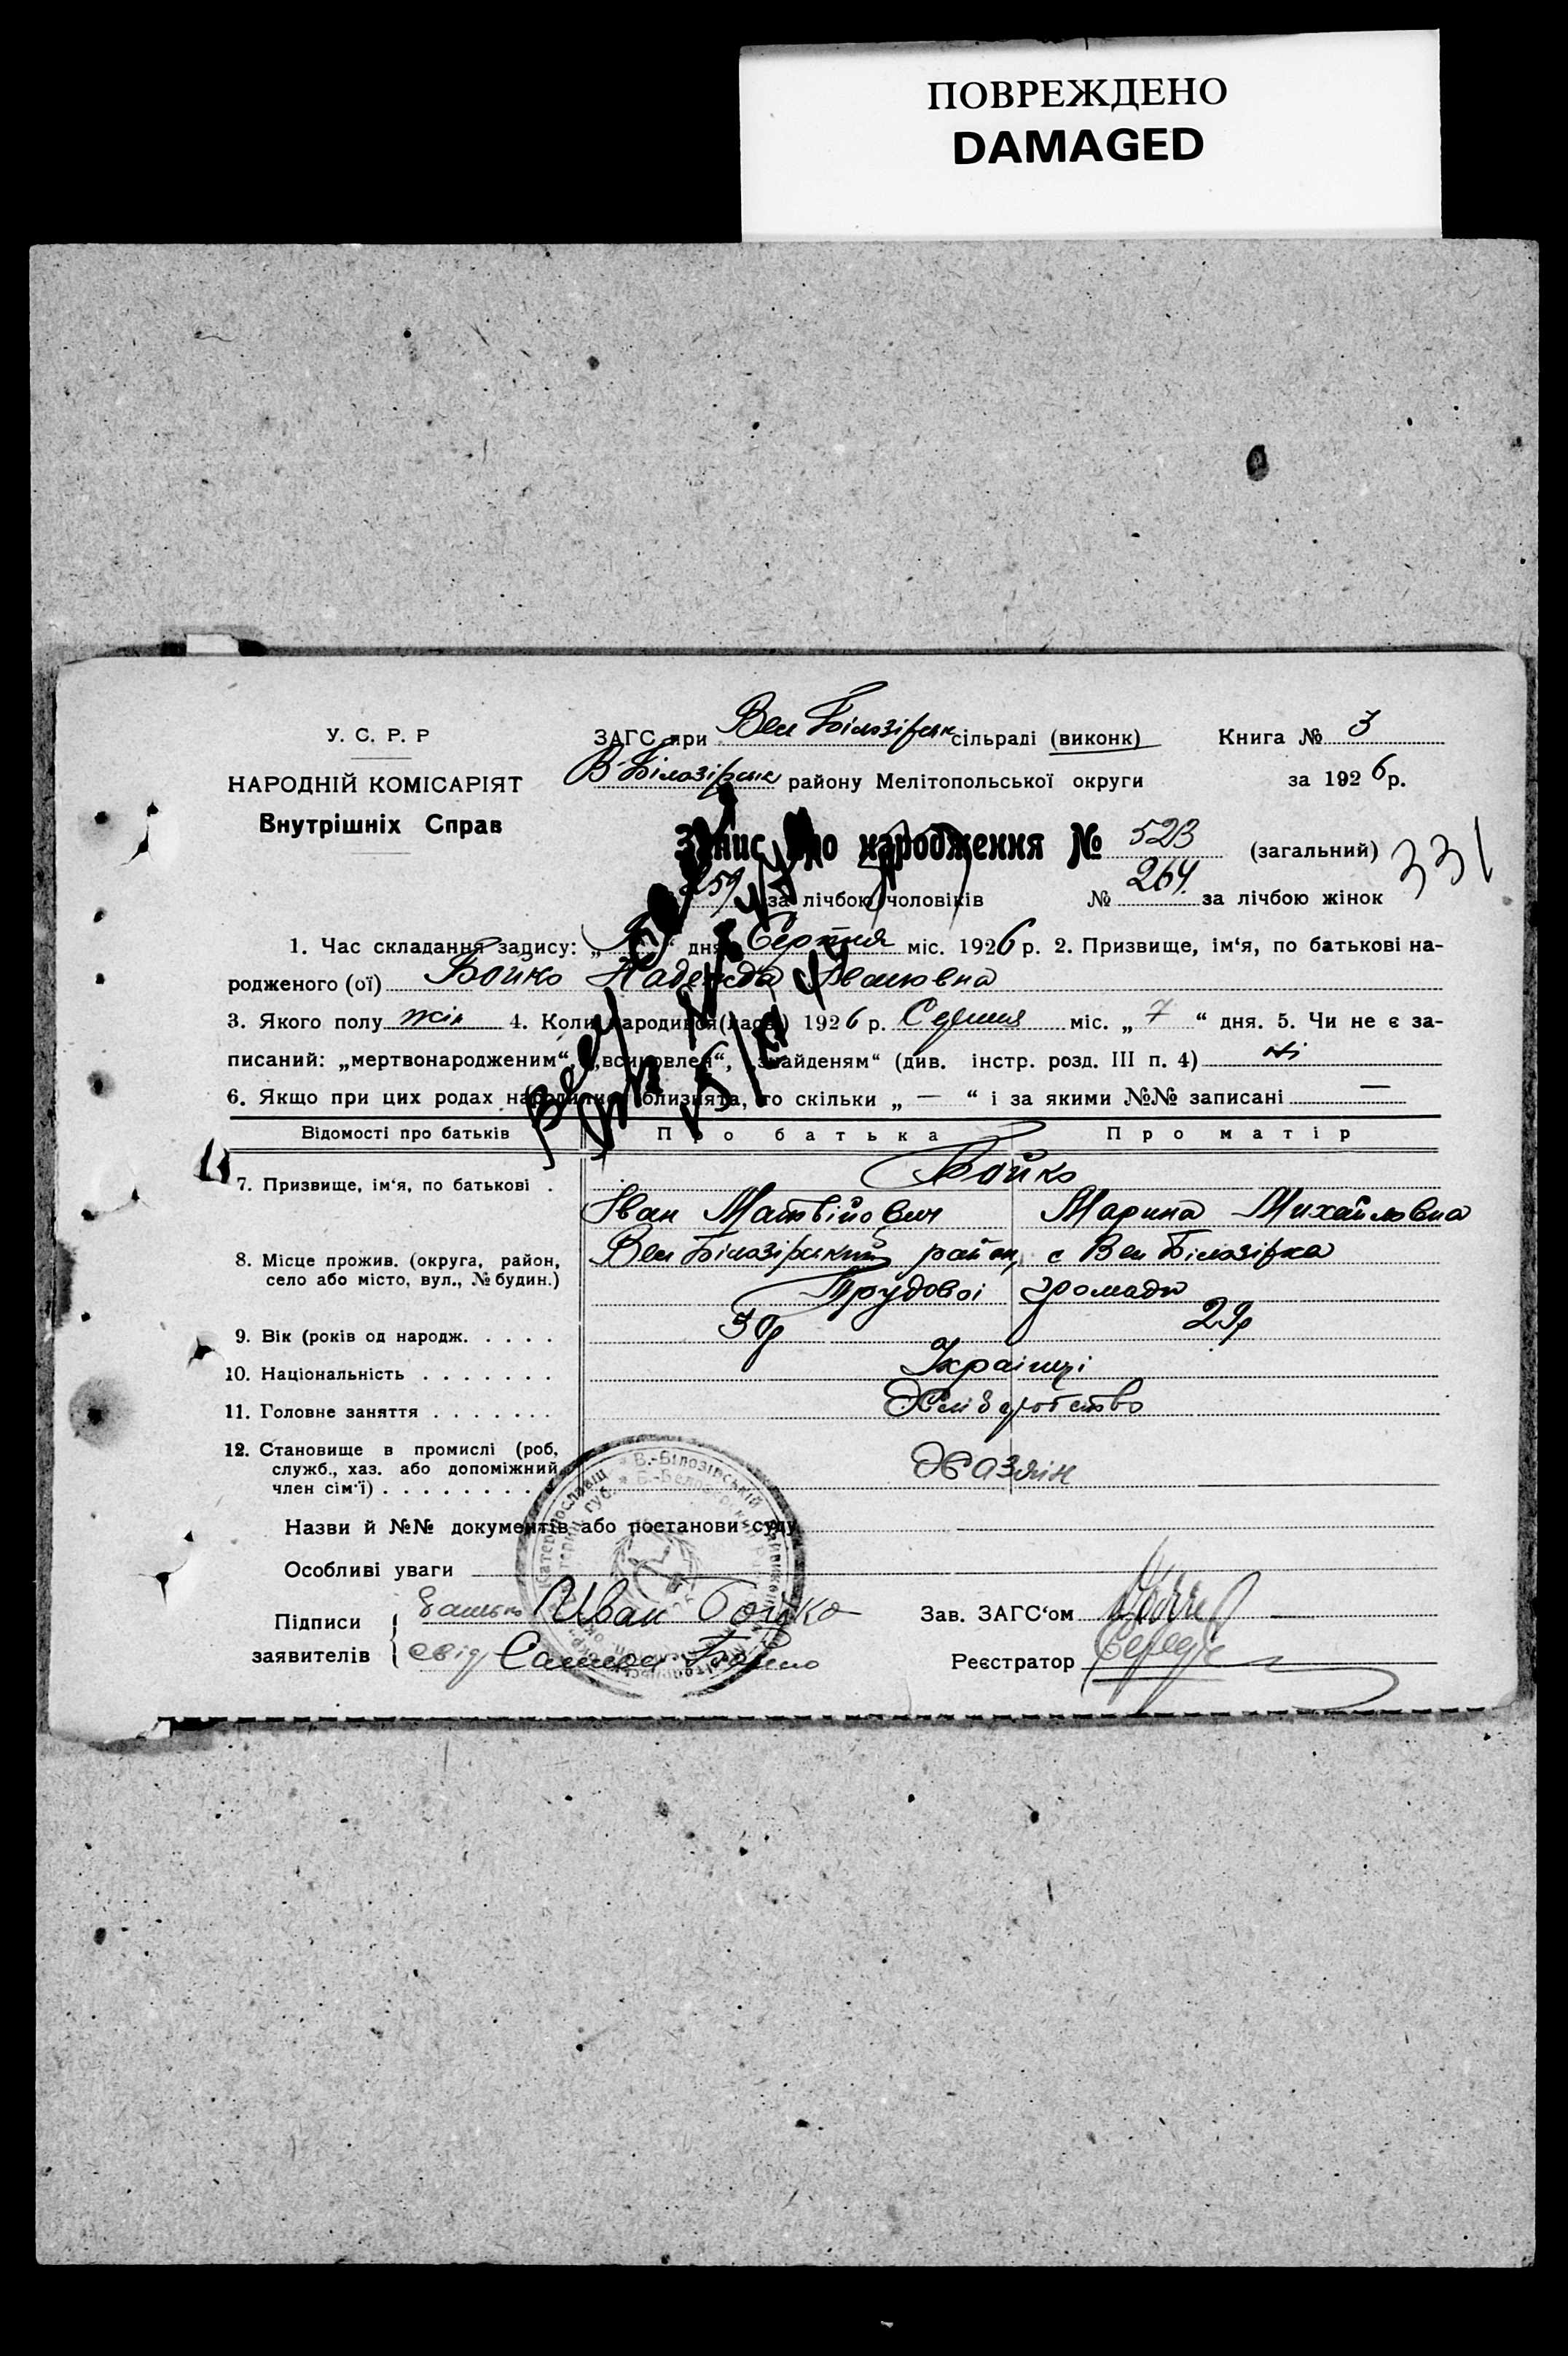 ПОВРЕЖДЕНО
DAMAGED
У. С. Р. Р
ЗАГС при Вел Білозірськ сільраді (виконк) Книга № 3
НАРОДНІЙ КОМІСАРІЯТ
В-Білозірськ району Мелітопольської округи за 1926 р.
Внутрішніх Справ
Запис про народження № 523 (загальний) 331
259 за лічбою чоловіків № 264. за лічбою жінок
1. Час складання запису: „ “ дня Серпня міс. 1926 р. 2. Призвище, ім‘я, по батькові на-
родженого (ої) Бойко Надежда Івановна
3. Якого полу жін 4. Коли народився(лась) 1926 р. Серпня міс. „ 7 “ дня. 5. Чи не є за-
писаний: „мертвонародженим“, „всиновлен“, „знайденям“ (див. інстр. розд. III п. 4) ні
6. Якщо при цих родах народились близнята, то скільки „ — “ і за якими №№ записані —
Відомості про батьків Про батька Про матір
7. Призвище, ім‘я, по батькові . Бойко
Іван Матвійович Марина Михайловна
8. Місце прожив. (округа, район, Вел Білозірський район, с Вел Білозірка
село або місто, вул., № будин.) Трудової громади
9. Вік (років од народж. . . . . 30р 29р
10. Національність . . . . . . . Українці
11. Головне заняття . . . . . . . Хліборобство
12. Становище в промислі (роб,
служб., хаз. або допоміжний Хазяїн
член сім‘ї) . . . . . . . . .
Назви й №№ документів або постанови суду
Особливі уваги
Підписи батько Иван Бойко Зав. ЗАГС‘ом
заявителів свід Реєстратор